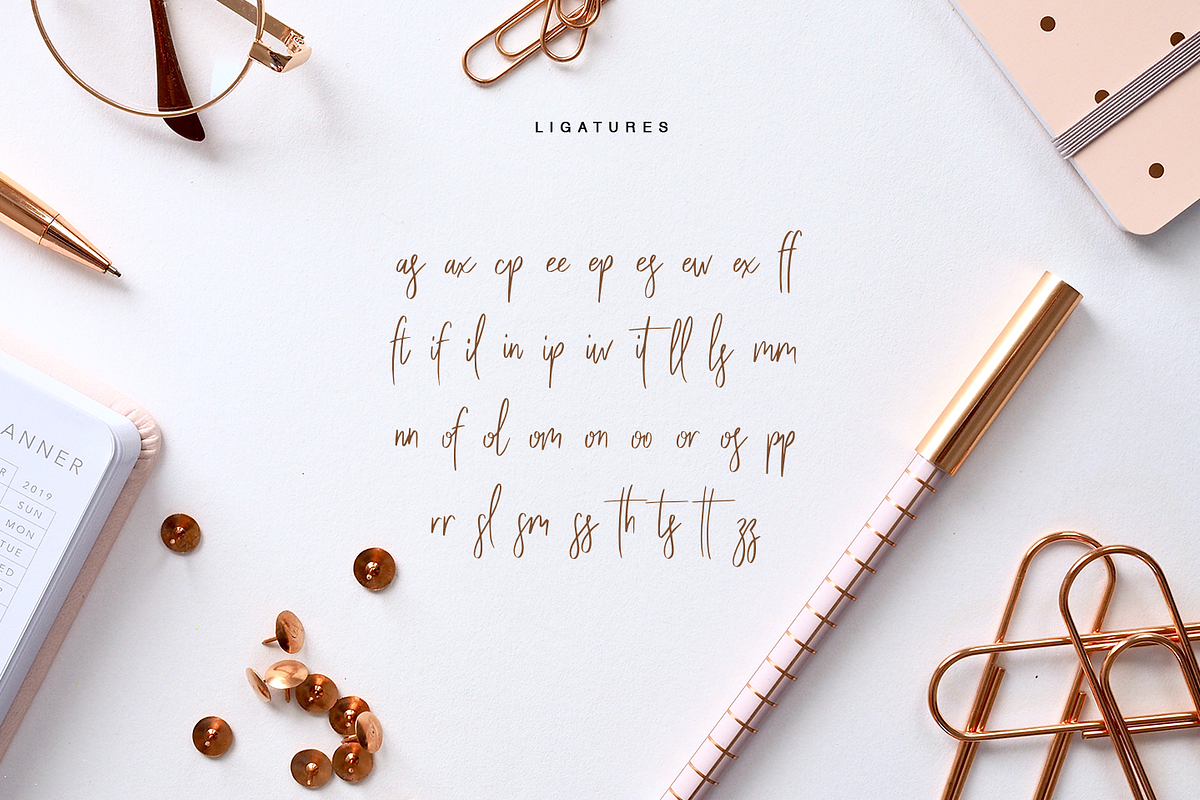 LIGATURES
as ax cp ee ep es ew ex ff
ft if il in ip iv it ll ls mm
nn of ol om on oo or os pp
rr sl sm ss th ts tt zz
ANNER
2019
SUN
MON
TUE